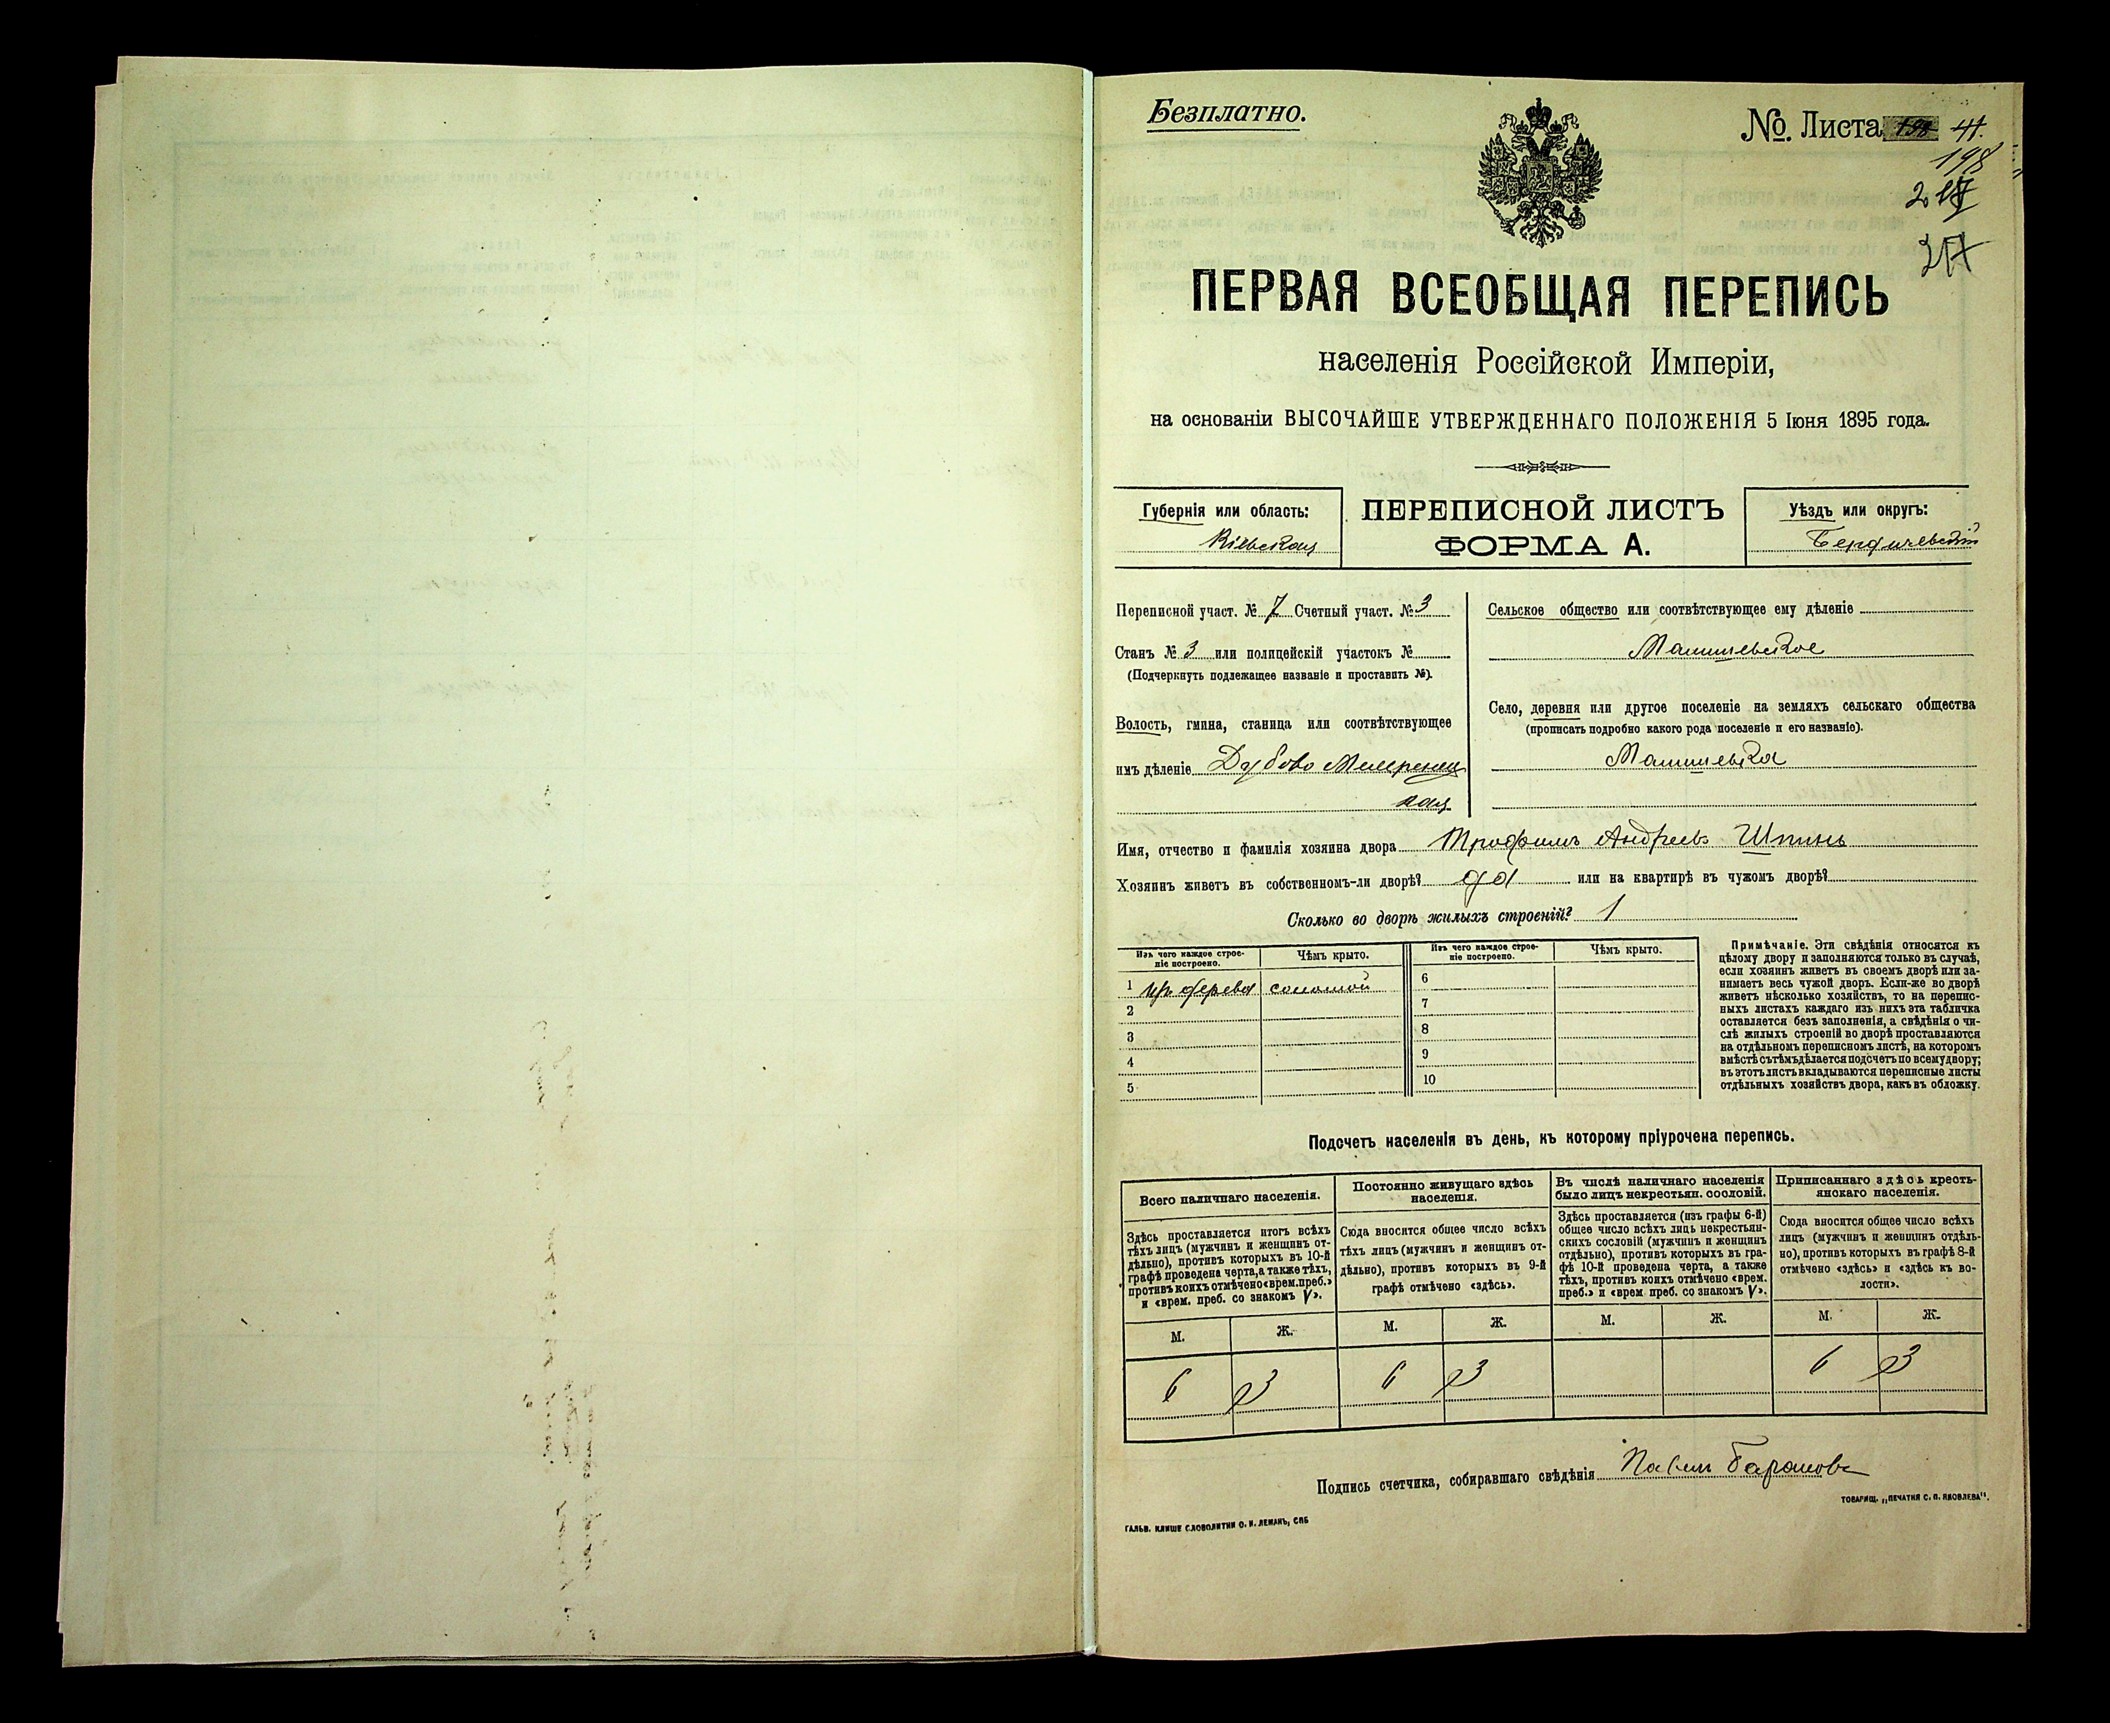 Безплатно.
№ Листа 41.
198
217
ПЕРВАЯ ВСЕОБЩАЯ ПЕРЕПИСЬ
населенія Россійской Имперіи,
на основаніи ВЫСОЧАЙШЕ УТВЕРЖДЕННАГО ПОЛОЖЕНІЯ 5 Іюня 1895 года.
Губернія или область:
Кіевская
ПЕРЕПИСНОЙ ЛИСТЪ
ФОРМА А.
Уѣздъ или округъ:
Бердичевскій
Переписной участ. № 7 Счетный участ. № 3
Станъ № 3 или полицейскій участокъ №
(Подчеркнуть подлежащее названіе и проставить №).
Волость, гмина, станица или соотвѣтствующее
имъ дѣленіе Дубово Махренец
кая
Сельское общество или соотвѣтствующее ему дѣленіе
Село, деревня или другое поселеніе на земляхъ сельскаго общества
(прописать подробно какого рода поселеніе и его названіе).
Имя, отчество и фамилія хозяина двора Трофимъ Андреевъ Шпинь
Хозяинъ живетъ въ собственномъ-ли дворѣ? да или на квартирѣ въ чужомъ дворѣ?
Сколько во дворѣ жилыхъ строеній? 1
Изъ чего каждое строе-
ніе построено.
Чѣмъ крыто.
1 изъ дерева соломой
2
3
4
5
Изъ чего каждое строе-
ніе построено.
Чѣмъ крыто.
6
7
8
9
10
Примѣчаніе. Эти свѣдѣнія относятся къ
цѣлому двору и заполняются только въ случаѣ,
если хозяинъ живетъ въ своемъ дворѣ или за-
нимаетъ весь чужой дворъ. Если-же во дворѣ
живетъ нѣсколько хозяйствъ, то на перепис-
ныхъ листахъ каждаго изъ нихъ эта табличка
оставляется безъ заполненія, а свѣдѣнія о чи-
слѣ жилыхъ строеній во дворѣ проставляются
на отдѣльномъ переписномъ листѣ, на которомъ
вмѣстѣ съ тѣмъ дѣлается подсчетъ по всему двору;
въ этотъ листъ вкладываются переписные листы
отдѣльныхъ хозяйствъ двора, какъ въ обложку.
Подсчетъ населенія въ день, къ которому пріурочена перепись.
Всего наличнаго населенія.
Здѣсь проставляется итогъ всѣхъ
тѣхъ лицъ (мужчинъ и женщинъ от-
дѣльно), противъ которыхъ въ 10-й
графѣ проведена черта, а также тѣхъ,
противъ коихъ отмѣчено «врем. преб.»
и «врем. преб. со знакомъ V».
М. Ж.
6 3
Постоянно живущаго здѣсь
населенія.
Сюда вносится общее число всѣхъ
тѣхъ лицъ (мужчинъ и женщинъ от-
дѣльно), противъ которыхъ въ 9-й
графѣ отмѣчено «здѣсь».
М. Ж.
6 3
Въ числѣ наличнаго населенія
было лицъ некрестьян. сословій.
Здѣсь проставляется (изъ графы 6-й)
общее число всѣхъ лицъ некрестьян-
скихъ сословій (мужчинъ и женщинъ
отдѣльно), противъ которыхъ въ гра-
фѣ 10-й проведена черта, а также
тѣхъ, противъ коихъ отмѣчено «врем.
преб.» и «врем преб. со знакомъ V».
М. Ж.
Приписаннаго здѣсь кресть-
янскаго населенія.
Сюда вносится общее число всѣхъ
лицъ (мужчинъ и женщинъ отдѣль-
но), противъ которыхъ въ графѣ 8-й
отмѣчено «здѣсь» и «здѣсь къ во-
лости».
М. Ж.
6 3
Подпись счетчика, собиравшаго свѣдѣнія Павелъ Барановъ
ТОВАРИЩ. „ПЕЧАТНЯ С. П. ЯКОВЛЕВА".
ГАЛЬВ. КЛИШЕ СЛОВОЛИТНИ О. И. ЛЕМАНЪ, СПБ